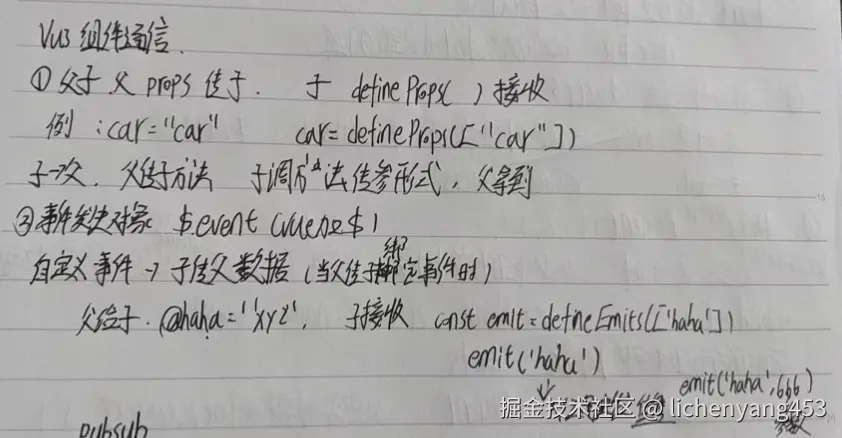 Vu3 组件通信.
①父子 父 props 传子. 子 defineProps( ) 接收
例 :car="car" car=defineProps(["car"])
子→父. 父传子方法 子调方法传参形式, 父拿到
②事件 对象 $event (vue
自定义事件→子传父数据 (当父传子绑定事件时)
绑
父给子. @haha="xyz". 子接收 const emit=defineEmits(['haha'])
emit('haha') emit('haha',666)
↓ 参数
掘金技术社区 @ lichenyang453
pubsub